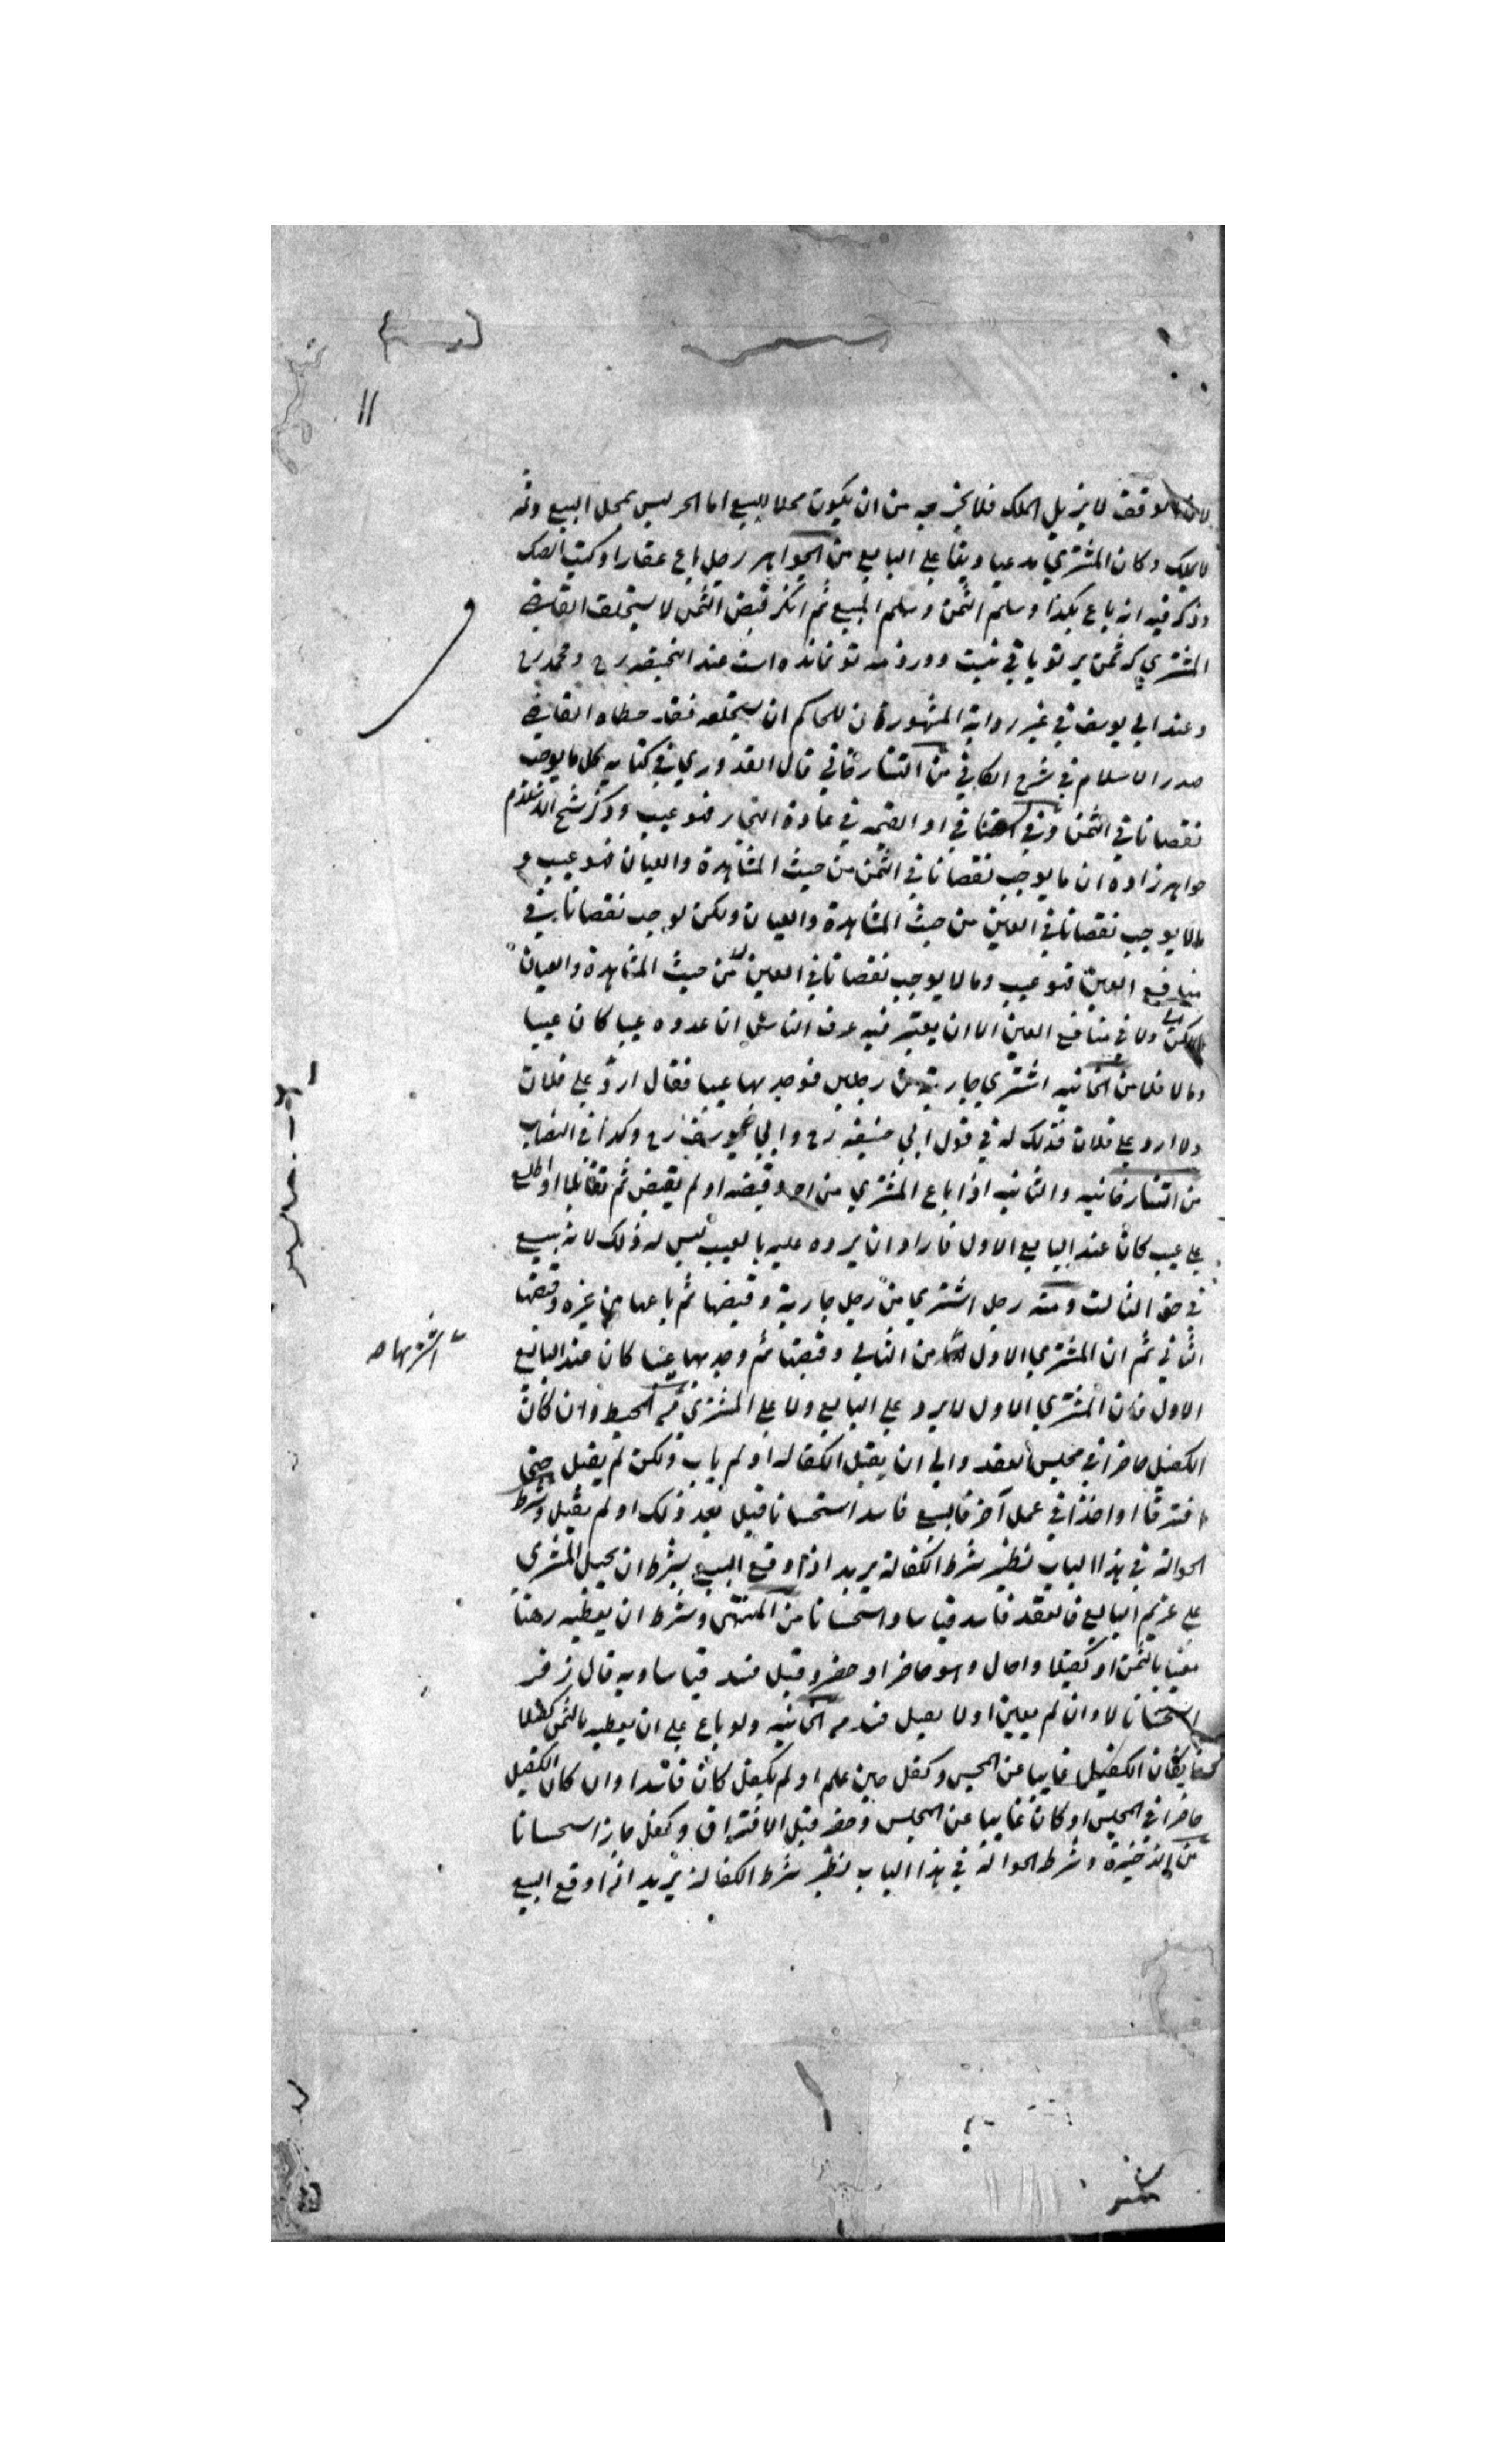 لان الوقف لا يزيل الملك فلا يخرجه من ان يكون محلا للبيع اما الحر ليس بمحل البيع
لا يملك وكان المشتري مدعيا دينا على البايع من الجواهر رجل باع عقارا وكتب الصك
وذكر فيه انه باع بكذا وسلم الثمن وسلم المبيع ثم انكر قبض الثمن لا يستحلف القاضي
المشتري كه ثمن بر تو باقي نيست ودر ذمه تو نمانده است عند ابيحنيفه رح ومحمد رح
وعند ابي يوسف في غير رواية المشهورة ان للحاكم ان يستحلفه فقد خطاه القاضي
صدر الاسلام في شرح الكافي من التتارخاني قال القدوري في كتابه كل ما يوجب
نقصانا في الثمن او القيمه في عادة التجار فهو عيب وذكر شيخ الاسلام
خواهرزاده ان ما يوجب نقصانا في الثمن من حيث المشاهدة والعيان فهو عيب و
ما لا يوجب نقصانا في العين من حيث المشاهدة والعيان ولكن يوجب نقصانا في
منافع العين فهو عيب وما لا يوجب نقصانا في العين من حيث المشاهدة والعيان
ولا في منافع العين الا ان يعتبر فيه عرف الناس ان عدوه عيبا كان عيبا
وما لا فلا من الخانيه اشتري جارية من رجلين فوجد بها عيبا فقال ارد على فلان
ولا ارد على فلان فذلك له في قول ابي حنيفه رح وابي يوسف رح وكذا في النصاب
من التتارخانيه والثانيه اذا باع المشتري من اخر وقبضه او لم يقبض ثم تقايلا او اطلع
على عيب كان عند البايع الاول فاراد ان يرده عليه بالعيب ليس له ذلك لانه بيع
في حق الثالث ومنه رجل اشتري من رجل جارية وقبضها ثم باعها من غيره وقبضها
الثاني ثم ان المشتري الاول من الثاني وقبضها ثم وجد بها عيبا كان عند البايع
اشتراها صح
الاول فان المشتري الاول لا يرد على البايع ولا على المشتري من المحيط وان كان
الكفيل حاضرا في مجلس العقد وابي ان يقبل الكفاله او لم ياب ولكن لم يقبل حتى
افترقا او اخذا في عمل آخر فالبيع فاسد استحسانا قبل بعد ذلك او لم يقبل وشرط
الحوالة في هذا الباب نظير شرط الكفالة يريد اذا وقع البيع بشرط ان يحيل المشتري
على غريم البايع فالعقد فاسد قياسا واستحسانا من المنتقى وشرط ان يعطيه رهنا
معينا بالثمن او كفيلا واحال وهو حاضر او حضر وقبل فسد قياسا وبه قال زفر
استحسانا لا وان لم يعين او لا يقبل فسد من الخانيه ولو باع على ان يعطيه بالثمن كفيلا
فكان الكفيل غايبا عن المجلس وكفل حين علم او لم يكفل كان فاسدا وان كان الكفيل
حاضرا في المجلس او كان غايبا عن المجلس وحضر قبل الافتراق وكفل جاز استحسانا
من الذخيرة وشرط الحوالة في هذا الباب نظير شرط الكفالة يريد اذا وقع البيع